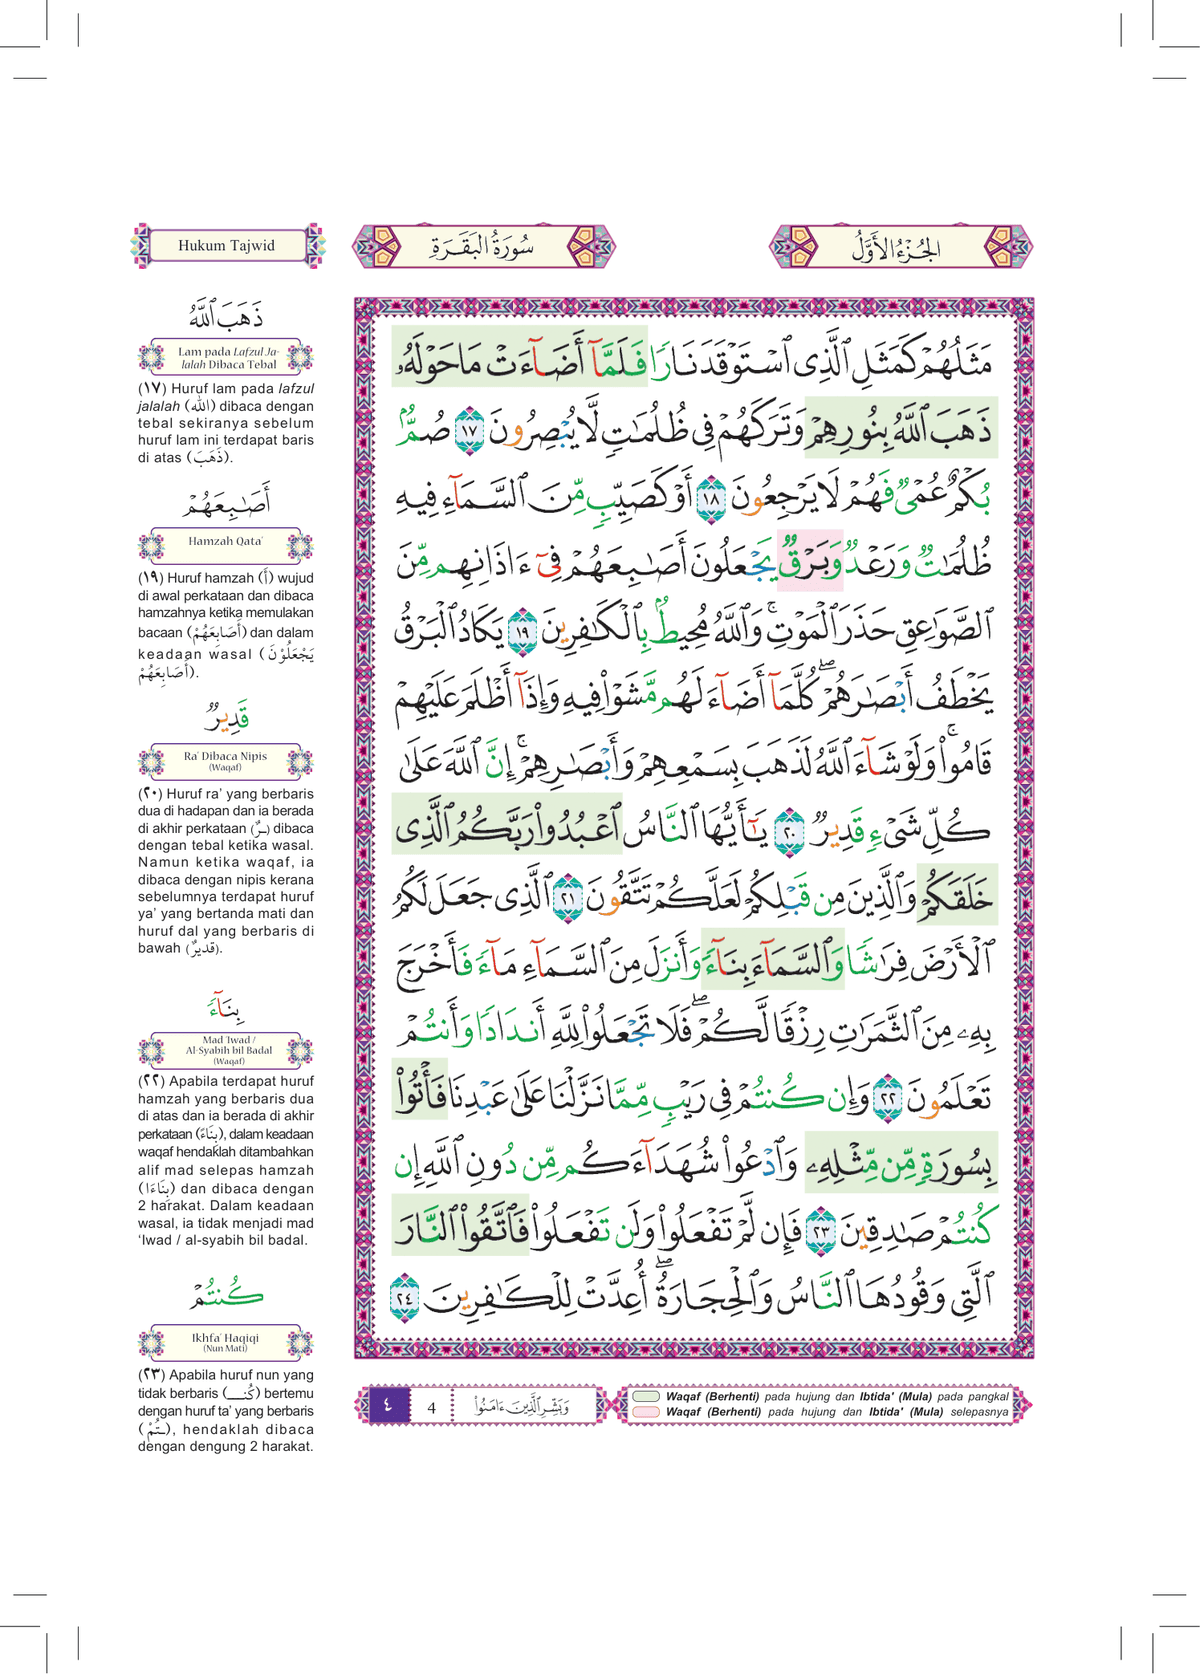 Hukum Tajwid
سُورَةُ الْبَقَرَةِ
الْجُزْءُ الْأَوَّلُ
ذَهَبَ ٱللَّهُ
Lam pada Lafzul Ja-
lalah Dibaca Tebal
(١٧) Huruf lam pada lafzul
jalalah (الله) dibaca dengan
tebal sekiranya sebelum
huruf lam ini terdapat baris
di atas (ذَهَبَ).
أَصَٰبِعَهُمْ
Hamzah Qata'
(١٩) Huruf hamzah (أ) wujud
di awal perkataan dan dibaca
hamzahnya ketika memulakan
bacaan (أَصَابِعَهُمْ) dan dalam
keadaan wasal (يَجْعَلُوْنَ
أَصَابِعَهُمْ).
قَدِيرٌ
Ra' Dibaca Nipis
(Waqaf)
(٢٠) Huruf ra' yang berbaris
dua di hadapan dan ia berada
di akhir perkataan (ـرٌ) dibaca
dengan tebal ketika wasal.
Namun ketika waqaf, ia
dibaca dengan nipis kerana
sebelumnya terdapat huruf
ya' yang bertanda mati dan
huruf dal yang berbaris di
bawah (قَدِيرٌ).
بِنَآءً
Mad 'Iwad /
Al-Syabih bil Badal
(Waqaf)
(٢٢) Apabila terdapat huruf
hamzah yang berbaris dua
di atas dan ia berada di akhir
perkataan (بِنَاءً), dalam keadaan
waqaf hendaklah ditambahkan
alif mad selepas hamzah
(بِنَاءَا) dan dibaca dengan
2 harakat. Dalam keadaan
wasal, ia tidak menjadi mad
'Iwad / al-syabih bil badal.
كُنتُمْ
Ikhfa' Haqiqi
(Nun Mati)
(٢٣) Apabila huruf nun yang
tidak berbaris (كُنـ) bertemu
dengan huruf ta' yang berbaris
(ـتُمْ), hendaklah dibaca
dengan dengung 2 harakat.
مَثَلُهُمْ كَمَثَلِ ٱلَّذِى ٱسْتَوْقَدَ نَارًا فَلَمَّآ أَضَآءَتْ مَا حَوْلَهُۥ
ذَهَبَ ٱللَّهُ بِنُورِهِمْ وَتَرَكَهُمْ فِى ظُلُمَٰتٍ لَّا يُبْصِرُونَ ١٧ صُمٌّۢ
بُكْمٌ عُمْىٌ فَهُمْ لَا يَرْجِعُونَ ١٨ أَوْ كَصَيِّبٍ مِّنَ ٱلسَّمَآءِ فِيهِ
ظُلُمَٰتٌ وَرَعْدٌ وَبَرْقٌ يَجْعَلُونَ أَصَٰبِعَهُمْ فِىٓ ءَاذَانِهِم مِّنَ
ٱلصَّوَٰعِقِ حَذَرَ ٱلْمَوْتِ ۚ وَٱللَّهُ مُحِيطٌۢ بِٱلْكَٰفِرِينَ ١٩ يَكَادُ ٱلْبَرْقُ
يَخْطَفُ أَبْصَٰرَهُمْ ۖ كُلَّمَآ أَضَآءَ لَهُم مَّشَوْا۟ فِيهِ وَإِذَآ أَظْلَمَ عَلَيْهِمْ
قَامُوا۟ ۚ وَلَوْ شَآءَ ٱللَّهُ لَذَهَبَ بِسَمْعِهِمْ وَأَبْصَٰرِهِمْ ۚ إِنَّ ٱللَّهَ عَلَىٰ
كُلِّ شَىْءٍ قَدِيرٌ ٢٠ يَٰٓأَيُّهَا ٱلنَّاسُ ٱعْبُدُوا۟ رَبَّكُمُ ٱلَّذِى
خَلَقَكُمْ وَٱلَّذِينَ مِن قَبْلِكُمْ لَعَلَّكُمْ تَتَّقُونَ ٢١ ٱلَّذِى جَعَلَ لَكُمُ
ٱلْأَرْضَ فِرَٰشًا وَٱلسَّمَآءَ بِنَآءً وَأَنزَلَ مِنَ ٱلسَّمَآءِ مَآءً فَأَخْرَجَ
بِهِۦ مِنَ ٱلثَّمَرَٰتِ رِزْقًا لَّكُمْ ۖ فَلَا تَجْعَلُوا۟ لِلَّهِ أَندَادًا وَأَنتُمْ
تَعْلَمُونَ ٢٢ وَإِن كُنتُمْ فِى رَيْبٍ مِّمَّا نَزَّلْنَا عَلَىٰ عَبْدِنَا فَأْتُوا۟
بِسُورَةٍ مِّن مِّثْلِهِۦ وَٱدْعُوا۟ شُهَدَآءَكُم مِّن دُونِ ٱللَّهِ إِن
كُنتُمْ صَٰدِقِينَ ٢٣ فَإِن لَّمْ تَفْعَلُوا۟ وَلَن تَفْعَلُوا۟ فَٱتَّقُوا۟ ٱلنَّارَ
ٱلَّتِى وَقُودُهَا ٱلنَّاسُ وَٱلْحِجَارَةُ ۖ أُعِدَّتْ لِلْكَٰفِرِينَ ٢٤
٤
4
وَبَشِّرِ ٱلَّذِينَ ءَامَنُوا۟
Waqaf (Berhenti) pada hujung dan Ibtida' (Mula) pada pangkal
Waqaf (Berhenti) pada hujung dan Ibtida' (Mula) selepasnya